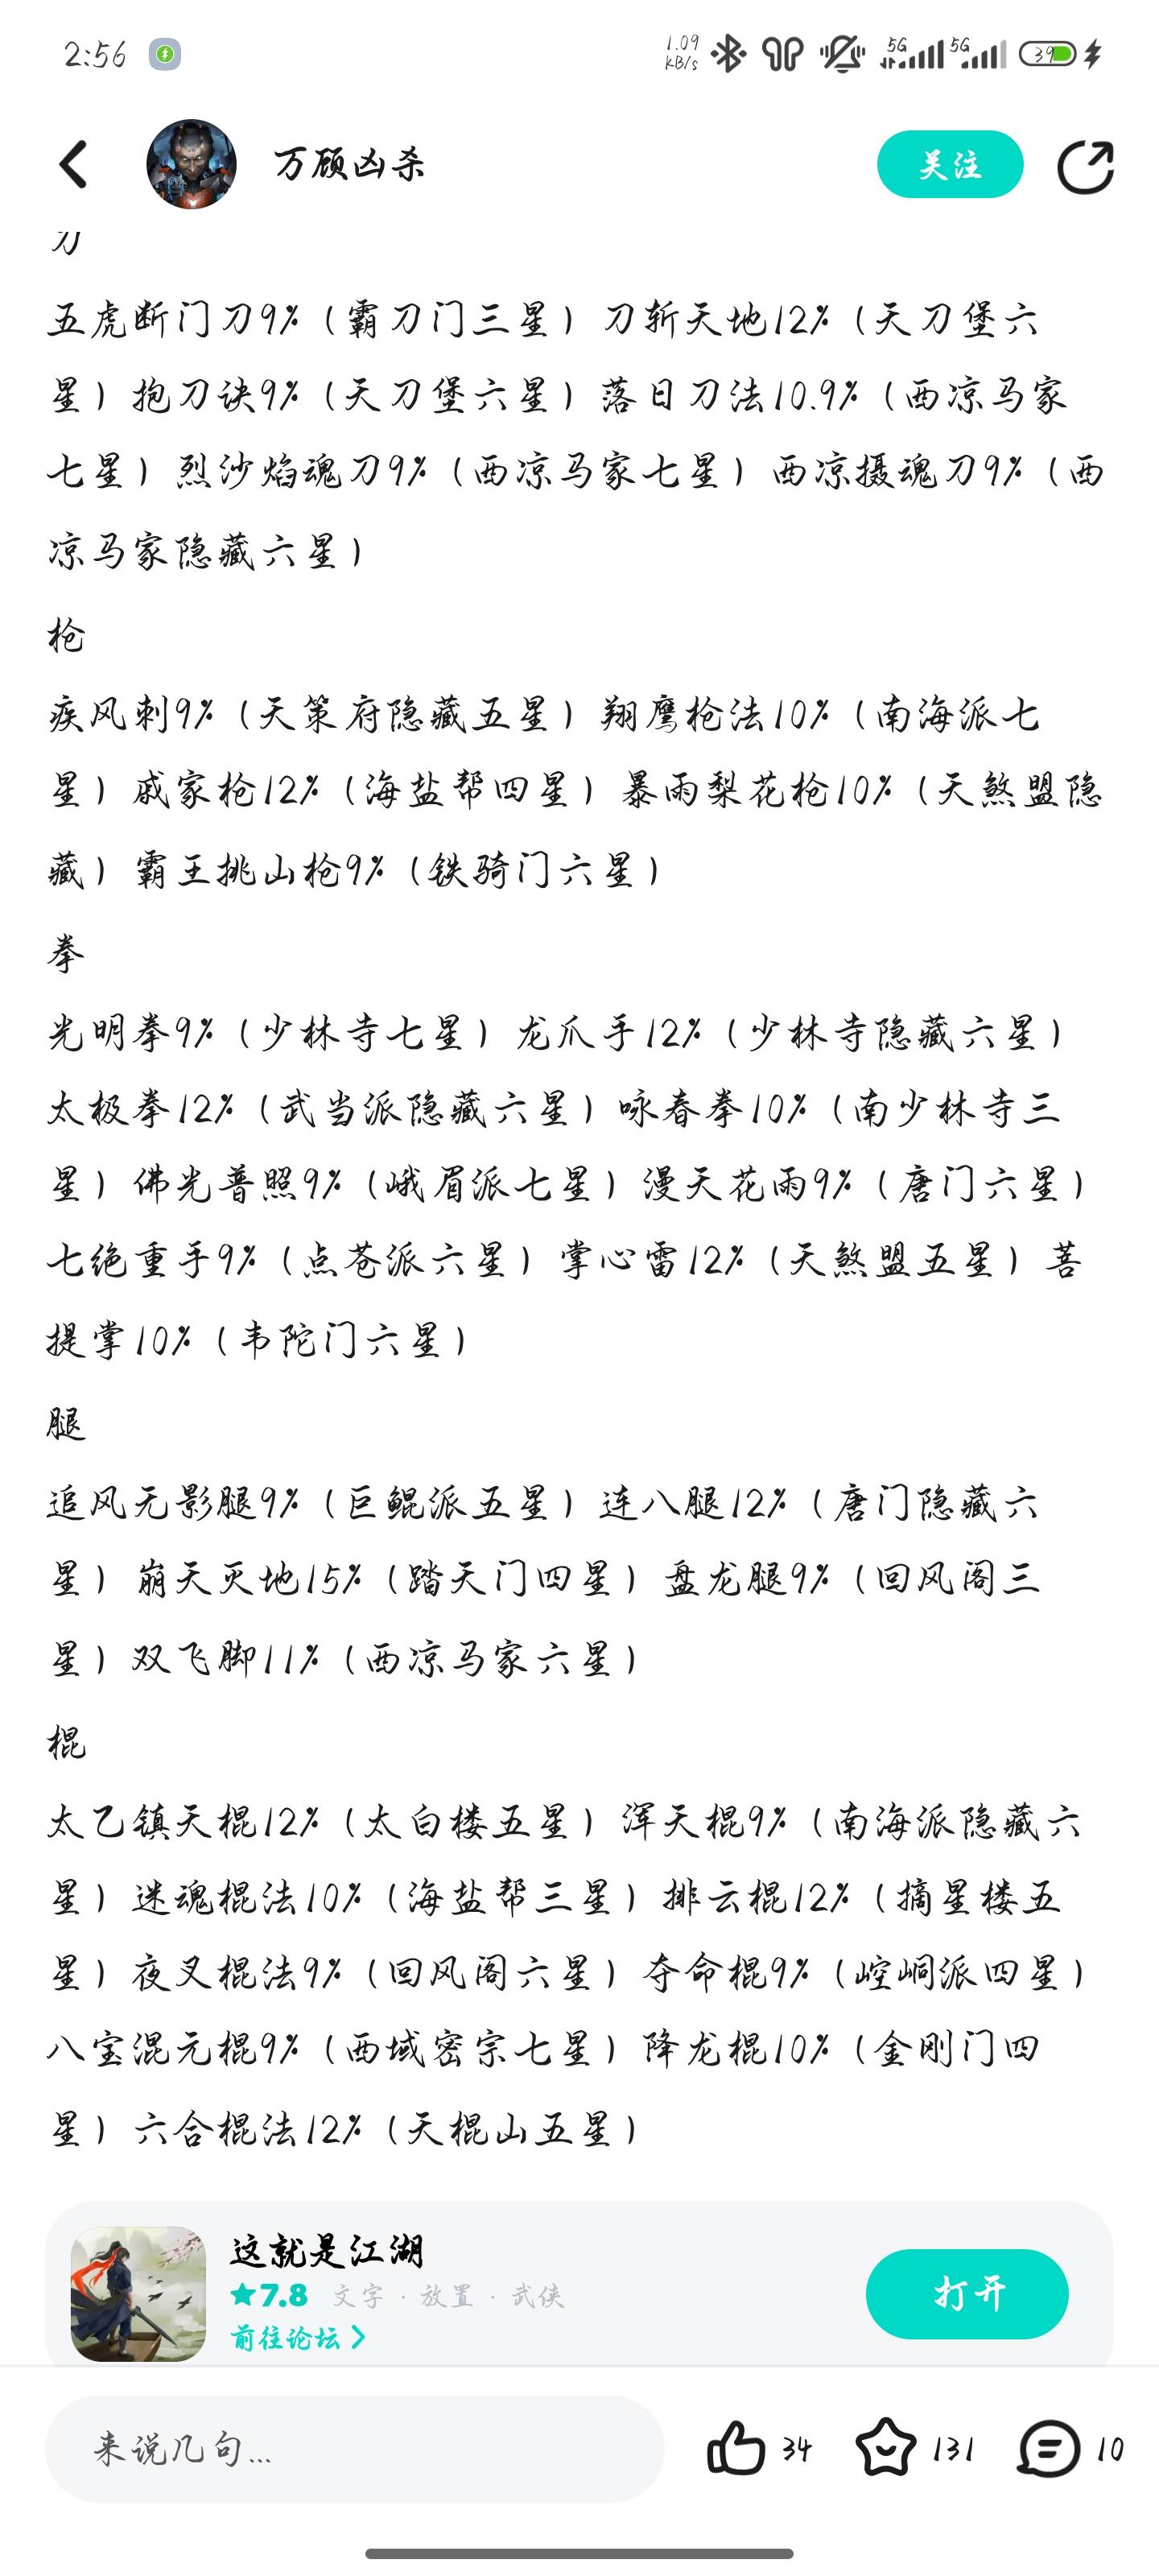 2:56
1.09 KB/s 5G 5G 39
万顾凶杀 关注
刀
五虎断门刀9%（霸刀门三星）刀斩天地12%（天刀堡六
星）抱刀诀9%（天刀堡六星）落日刀法10.9%（西凉马家
七星）烈沙焰魂刀9%（西凉马家七星）西凉摄魂刀9%（西
凉马家隐藏六星）
枪
疾风刺9%（天策府隐藏五星）翔鹰枪法10%（南海派七
星）戚家枪12%（海盐帮四星）暴雨梨花枪10%（天煞盟隐
藏）霸王挑山枪9%（铁骑门六星）
拳
光明拳9%（少林寺七星）龙爪手12%（少林寺隐藏六星）
太极拳12%（武当派隐藏六星）咏春拳10%（南少林寺三
星）佛光普照9%（峨眉派七星）漫天花雨9%（唐门六星）
七绝重手9%（点苍派六星）掌心雷12%（天煞盟五星）菩
提掌10%（韦陀门六星）
腿
追风无影腿9%（巨鲲派五星）连八腿12%（唐门隐藏六
星）崩天灭地15%（踏天门四星）盘龙腿9%（回风阁三
星）双飞脚11%（西凉马家六星）
棍
太乙镇天棍12%（太白楼五星）浑天棍9%（南海派隐藏六
星）迷魂棍法10%（海盐帮三星）排云棍12%（摘星楼五
星）夜叉棍法9%（回风阁六星）夺命棍9%（崆峒派四星）
八宝混元棍9%（西域密宗七星）降龙棍10%（金刚门四
星）六合棍法12%（天棍山五星）
这就是江湖
7.8 文字 · 放置 · 武侠
打开
前往论坛
来说几句... 34 131 10